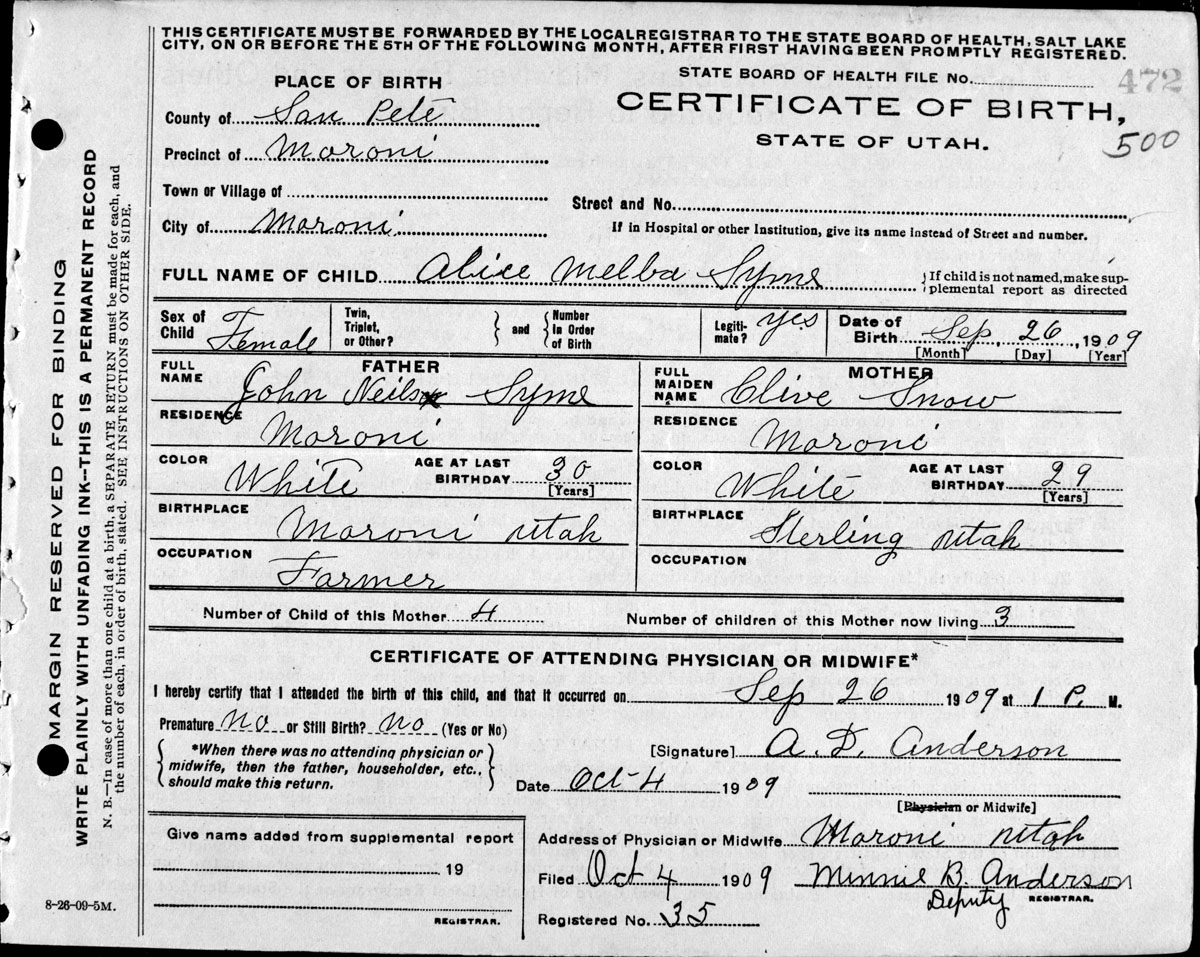 THIS CERTIFICATE MUST BE FORWARDED BY THE LOCAL REGISTRAR TO THE STATE BOARD OF HEALTH, SALT LAKE
CITY, ON OR BEFORE THE 5TH OF THE FOLLOWING MONTH, AFTER FIRST HAVING BEEN PROMPTLY REGISTERED.
PLACE OF BIRTH
STATE BOARD OF HEALTH FILE No. 472
County of San Pete
CERTIFICATE OF BIRTH,
STATE OF UTAH.
500
Precinct of Moroni
Town or Village of
Street and No.
City of Moroni
If in Hospital or other Institution, give its name instead of Street and number.
FULL NAME OF CHILD Alice Melba Syme
If child is not named, make sup-
plemental report as directed
Sex of Child Female
Twin, Triplet, or Other?
and
Number in Order of Birth
Legiti-mate? yes
Date of Birth Sep, 26, 1909
[Month] [Day] [Year]
FATHER
FULL NAME John Neils Syme
MOTHER
FULL MAIDEN NAME Clive Snow
RESIDENCE Moroni
RESIDENCE Moroni
COLOR White
AGE AT LAST BIRTHDAY 30
[Years]
COLOR White
AGE AT LAST BIRTHDAY 29
[Years]
BIRTHPLACE Moroni Utah
BIRTHPLACE Sterling Utah
OCCUPATION Farmer
OCCUPATION
Number of Child of this Mother 4
Number of children of this Mother now living 3
CERTIFICATE OF ATTENDING PHYSICIAN OR MIDWIFE*
I hereby certify that I attended the birth of this child, and that it occurred on Sep 26 1909 at 1 P. M.
Premature no or Still Birth? no (Yes or No)
*When there was no attending physician or
midwife, then the father, householder, etc.,
should make this return.
[Signature] A. D. Anderson
Date Oct-4 1909
[Physician or Midwife]
Give name added from supplemental report
19
REGISTRAR.
Address of Physician or Midwife Moroni Utah
Filed Oct 4 1909 Minnie B. Anderson
Deputy REGISTRAR.
Registered No. 35
8-26-09-5M.
MARGIN RESERVED FOR BINDING
WRITE PLAINLY WITH UNFADING INK--THIS IS A PERMANENT RECORD
N. B.—In case of more than one child at a birth, a SEPARATE RETURN must be made for each, and
the number of each, in order of birth, stated. SEE INSTRUCTIONS ON OTHER SIDE.